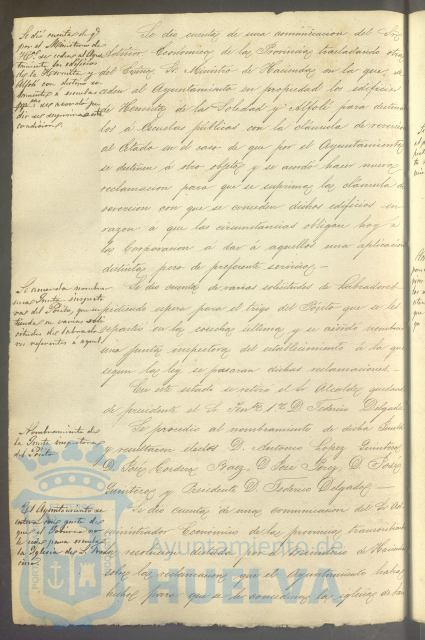 Se dió cuenta de q.e
por el Ministerio de
H.da se ceden al Ayun
tamiento los edificios
de la Hermita y
Alfolí con destino
á escuelas
se acordó pe
dir se suprima esta
condición.
Se dió cuenta de una comunicacion del Sr.
Económico de la Provincia trasladando otra
del Excmo. Sr. Ministro de Hacienda en la que se
ceden al Ayuntamiento en propiedad los edificios
de Hermita de la Soledad y Alfolí para destinar
los a Escuelas públicas con la cláusula de reversion
al Estado en el caso de que por el Ayuntamiento
se destinen á otro objeto y se acordó hacer nueva
reclamacion para que se suprima la cláusula de
reversion con que se conceden dichos edificios en
razon a que las circunstancias obligan hoy á
la Corporacion á dar á aquellos una aplicacion
distinta pero de preferente servicio.—
Se acuerda nombrar
una Junta inspecto
ra del Pósito, que en
tienda en varias soli
citudes de labrado
res referentes á aquel
Se dió cuenta de varias solicitudes de labradores
pidiendo espera para el trigo del Pósito que se les
repartió en la cosecha última y se acordó nombrar
una Junta inspectora del establecimiento á la que
segun la ley se pasaran dichas reclamaciones.—
En este estado se retiró el Sr. Alcalde quedando
de presidente el Sr. Ten.te 1.º D. Federico Delgado
Nombramiento de
la Junta inspectora
del Pósito
Se procedio al nombramiento de dicha Junta
y resultaron electos D. Antonio Lopez Quintero
D. José Cordero Baez, D. José Perez, D. José
Quintero y Presidente D. Federico Delgado.—
El Ayuntamiento se
entera con gusto de
que el Gobierno con
cede para escuela
la Iglesia de
Se dio cuenta de una comunicacion del Sr. Ad
ministrador Económico de la provincia transcribiendo
resolucion del Ministerio de Hacienda
sobre las reclamaciones que el Ayuntamiento habia
hecho para que se le concediera la iglesia de
Ayuntamiento de
HUELVA